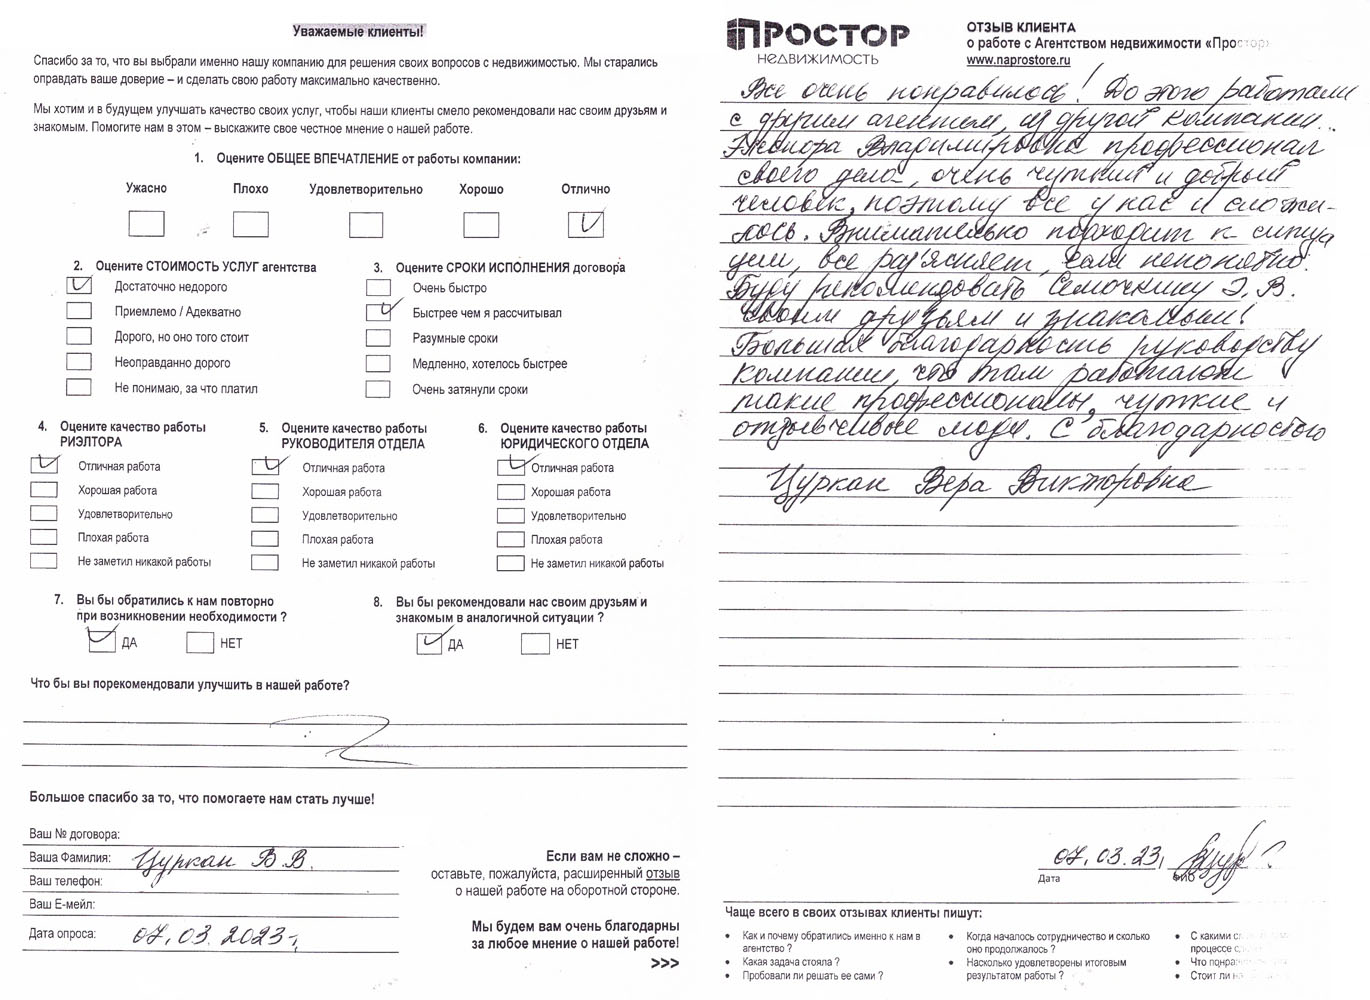 Уважаемые клиенты!
Спасибо за то, что вы выбрали именно нашу компанию для решения своих вопросов с недвижимостью. Мы старались
оправдать ваше доверие – и сделать свою работу максимально качественно.
Мы хотим и в будущем улучшать качество своих услуг, чтобы наши клиенты смело рекомендовали нас своим друзьям и
знакомым. Помогите нам в этом – выскажите свое честное мнение о нашей работе.
1. Оцените ОБЩЕЕ ВПЕЧАТЛЕНИЕ от работы компании:
Ужасно Плохо Удовлетворительно Хорошо Отлично
2. Оцените СТОИМОСТЬ УСЛУГ агентства
Достаточно недорого
Приемлемо / Адекватно
Дорого, но оно того стоит
Неоправданно дорого
Не понимаю, за что платил
3. Оцените СРОКИ ИСПОЛНЕНИЯ договора
Очень быстро
Быстрее чем я рассчитывал
Разумные сроки
Медленно, хотелось быстрее
Очень затянули сроки
4. Оцените качество работы
РИЭЛТОРА
Отличная работа
Хорошая работа
Удовлетворительно
Плохая работа
Не заметил никакой работы
5. Оцените качество работы
РУКОВОДИТЕЛЯ ОТДЕЛА
Отличная работа
Хорошая работа
Удовлетворительно
Плохая работа
Не заметил никакой работы
6. Оцените качество работы
ЮРИДИЧЕСКОГО ОТДЕЛА
Отличная работа
Хорошая работа
Удовлетворительно
Плохая работа
Не заметил никакой работы
7. Вы бы обратились к нам повторно
при возникновении необходимости ?
ДА НЕТ
8. Вы бы рекомендовали нас своим друзьям и
знакомым в аналогичной ситуации ?
ДА НЕТ
Что бы вы порекомендовали улучшить в нашей работе?
Большое спасибо за то, что помогаете нам стать лучше!
Ваш № договора:
Ваша Фамилия: Цуркан В.В.
Ваш телефон:
Ваш E-мейл:
Дата опроса: 07.03.2023г.
Если вам не сложно –
оставьте, пожалуйста, расширенный отзыв
о нашей работе на оборотной стороне.
Мы будем вам очень благодарны
за любое мнение о нашей работе!
>>>
ПРОСТОР
НЕДВИЖИМОСТЬ
ОТЗЫВ КЛИЕНТА
о работе с Агентством недвижимости «Простор»
www.naprostore.ru
Все очень понравилось! До этого работали
с другим агентом, из другой компании.
Элеонора Владимировна профессионал
своего дела, очень чуткий и добрый
человек, поэтому все у нас и сложи-
лось. Внимательно подходит к ситуа
ции, все разъясняет, если непонятно.
Буду рекомендовать Семочкину Э.В.
своим друзьям и знакомым!
Большая благодарность руководству
компании, что там работают
такие профессионалы, чуткие и
отзывчивые люди. С благодарностью
Цуркан Вера Викторовна
07.03.23,
Дата ФИО
Чаще всего в своих отзывах клиенты пишут:
• Как и почему обратились именно к нам в
агентство ?
• Какая задача стояла ?
• Пробовали ли решать ее сами ?
• Когда началось сотрудничество и сколько
оно продолжалось ?
• Насколько удовлетворены итоговым
результатом работы ?
• С какими
процессе
• Что понрави
• Стоит ли